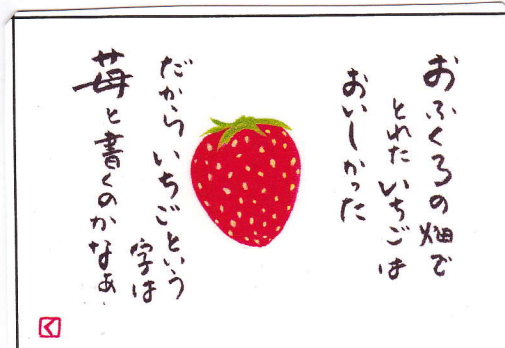 おふくろの畑で
とれたいちごは
おいしかった
だから いちごという
字は
苺と書くのかなぁ
く